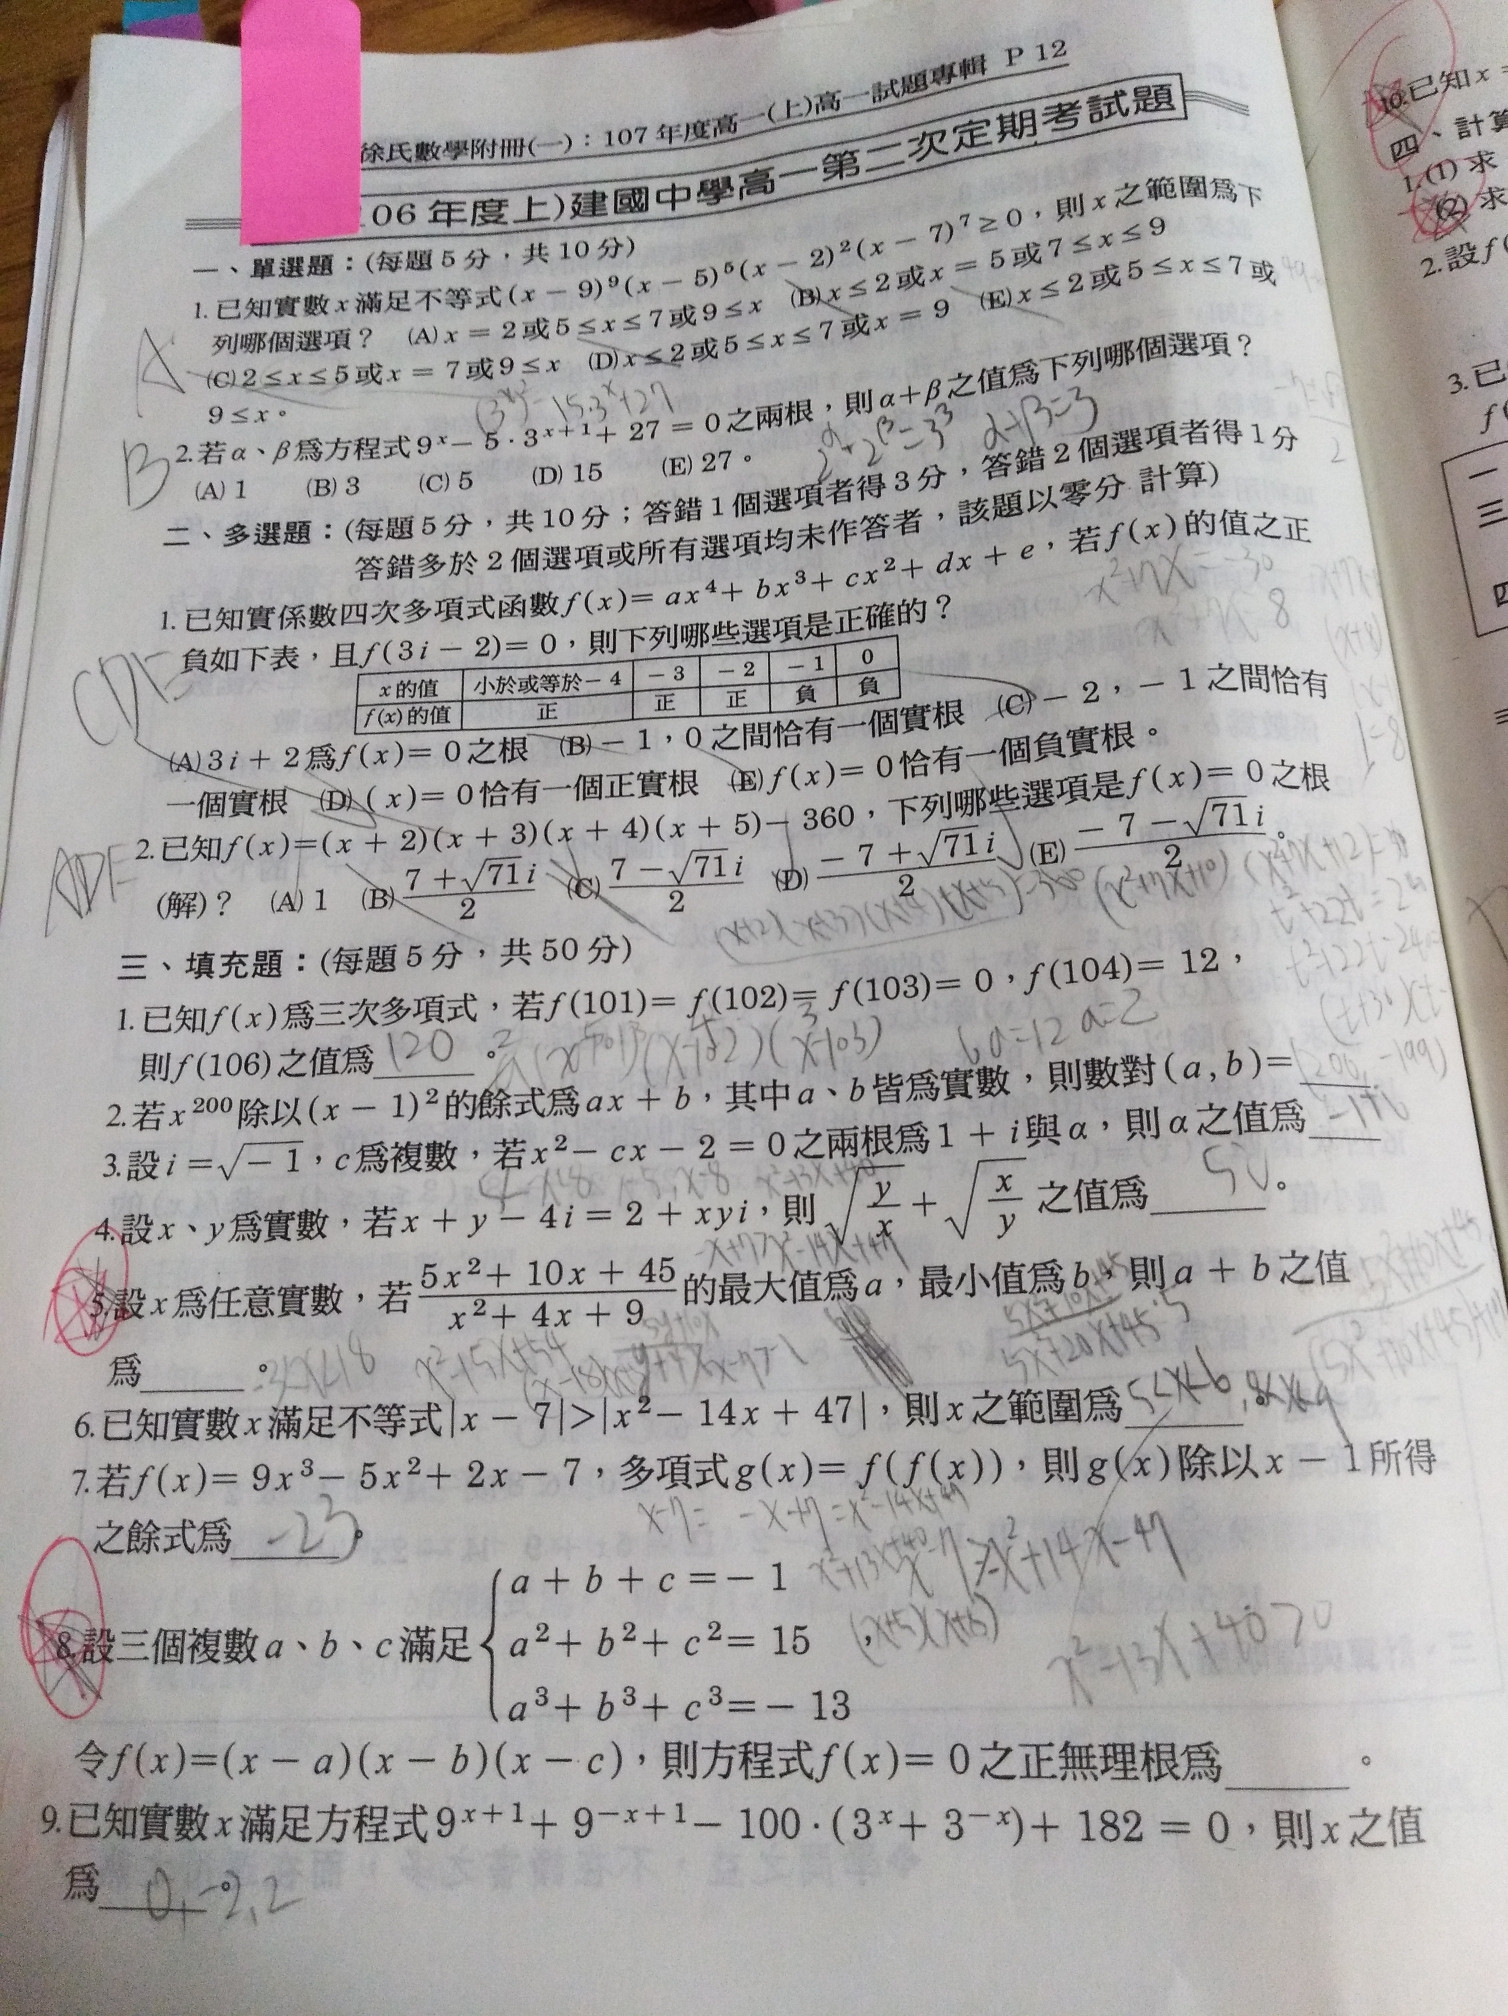 徐氏數學附冊(一)：107年度高一(上)高一試題專輯 P 12
06年度上)建國中學高一第二次定期考試題
一、單選題：(每題5分，共10分)
1.已知實數x滿足不等式(x－9)⁹(x－5)⁵(x－2)²(x－7)⁷≥0，則x之範圍爲下
列哪個選項？ (A)x＝2或5≤x≤7或9≤x (B)x≤2或x＝5或7≤x≤9
(C)2≤x≤5或x＝7或9≤x (D)x≤2或5≤x≤7或x＝9 (E)x≤2或5≤x≤7或
9≤x。
A
2.若α、β爲方程式9ˣ－5·3ˣ⁺¹＋27＝0之兩根，則α＋β之值爲下列哪個選項？
(A)1 (B)3 (C)5 (D)15 (E)27。
B
α+β=3
二、多選題：(每題5分，共10分；答錯1個選項者得3分，答錯2個選項者得1分
答錯多於2個選項或所有選項均未作答者，該題以零分 計算)
1.已知實係數四次多項式函數f(x)＝ax⁴＋bx³＋cx²＋dx＋e，若f(x)的值之正
負如下表，且f(3i－2)＝0，則下列哪些選項是正確的？
x的值 小於或等於－4 －3 －2 －1 0
f(x)的值 正 正 正 負 負
(A)3i＋2爲f(x)＝0之根 (B)－1，0之間恰有一個實根 (C)－2，－1之間恰有
一個實根 (D)(x)＝0恰有一個正實根 (E)f(x)＝0恰有一個負實根。
CDE
2.已知f(x)＝(x＋2)(x＋3)(x＋4)(x＋5)－360，下列哪些選項是f(x)＝0之根
(解)？ (A)1 (B)(7＋√71i)/2 (C)(7－√71i)/2 (D)(－7＋√71i)/2 (E)(－7－√71i)/2。
ADE
(x+2)(x+3)(x+4)(x+5)-360 (x²+7x+10)(x²+7x+12)
三、填充題：(每題5分，共50分)
1.已知f(x)爲三次多項式，若f(101)＝f(102)＝f(103)＝0，f(104)＝12，
則f(106)之值爲120。
6a=12 a=2
2.若x²⁰⁰除以(x－1)²的餘式爲ax＋b，其中a、b皆爲實數，則數對(a,b)＝(200,-199)
3.設i＝√－1，c爲複數，若x²－cx－2＝0之兩根爲1＋i與α，則α之值爲-1+i
4.設x、y爲實數，若x＋y－4i＝2＋xyi，則√(y/x)＋√(x/y)之值爲＿＿＿。
5.設x爲任意實數，若(5x²＋10x＋45)/(x²＋4x＋9)的最大值爲a，最小值爲b，則a＋b之值
爲＿＿＿。
6.已知實數x滿足不等式|x－7|>|x²－14x＋47|，則x之範圍爲5<x<6,8<x<9。
7.若f(x)＝9x³－5x²＋2x－7，多項式g(x)＝f(f(x))，則g(x)除以x－1所得
之餘式爲-23。
x-7>-x²+14x-47
x²-13x+40>0
8.設三個複數a、b、c滿足
a＋b＋c＝－1
a²＋b²＋c²＝15
a³＋b³＋c³＝－13
令f(x)＝(x－a)(x－b)(x－c)，則方程式f(x)＝0之正無理根爲＿＿＿。
9.已知實數x滿足方程式9ˣ⁺¹＋9⁻ˣ⁺¹－100·(3ˣ＋3⁻ˣ)＋182＝0，則x之值
爲0,-2,2。
10.已知x
四、計算
1.(1)求
(2)求
2.設f(
3.已
f(
一
三
四